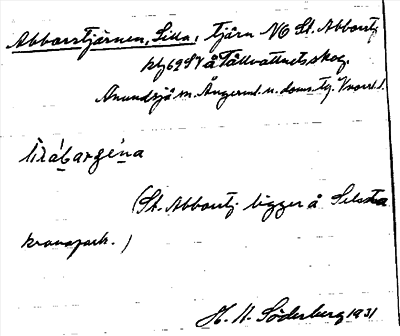 Abborrtjärnen, Lilla, tjärn NO St. Abborrtj.
på Tällvattnets skog.
Anundsjö sn. Ångerml. n. doms. tg. Vnorrl. l.
(St. Abborrtj ligger å Selsta
kronopark.)
H. N. Söderberg 1931